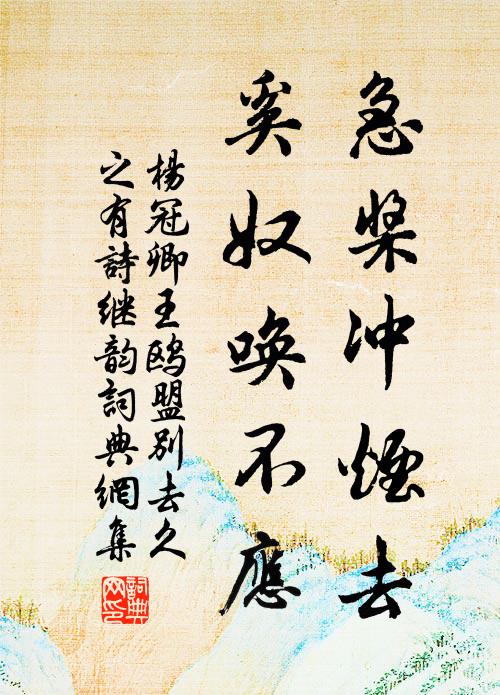 急槳冲煙去
奚奴喚不應
楊冠卿王鷗盟別去久
之有詩继韵詞典網集
詞典网印